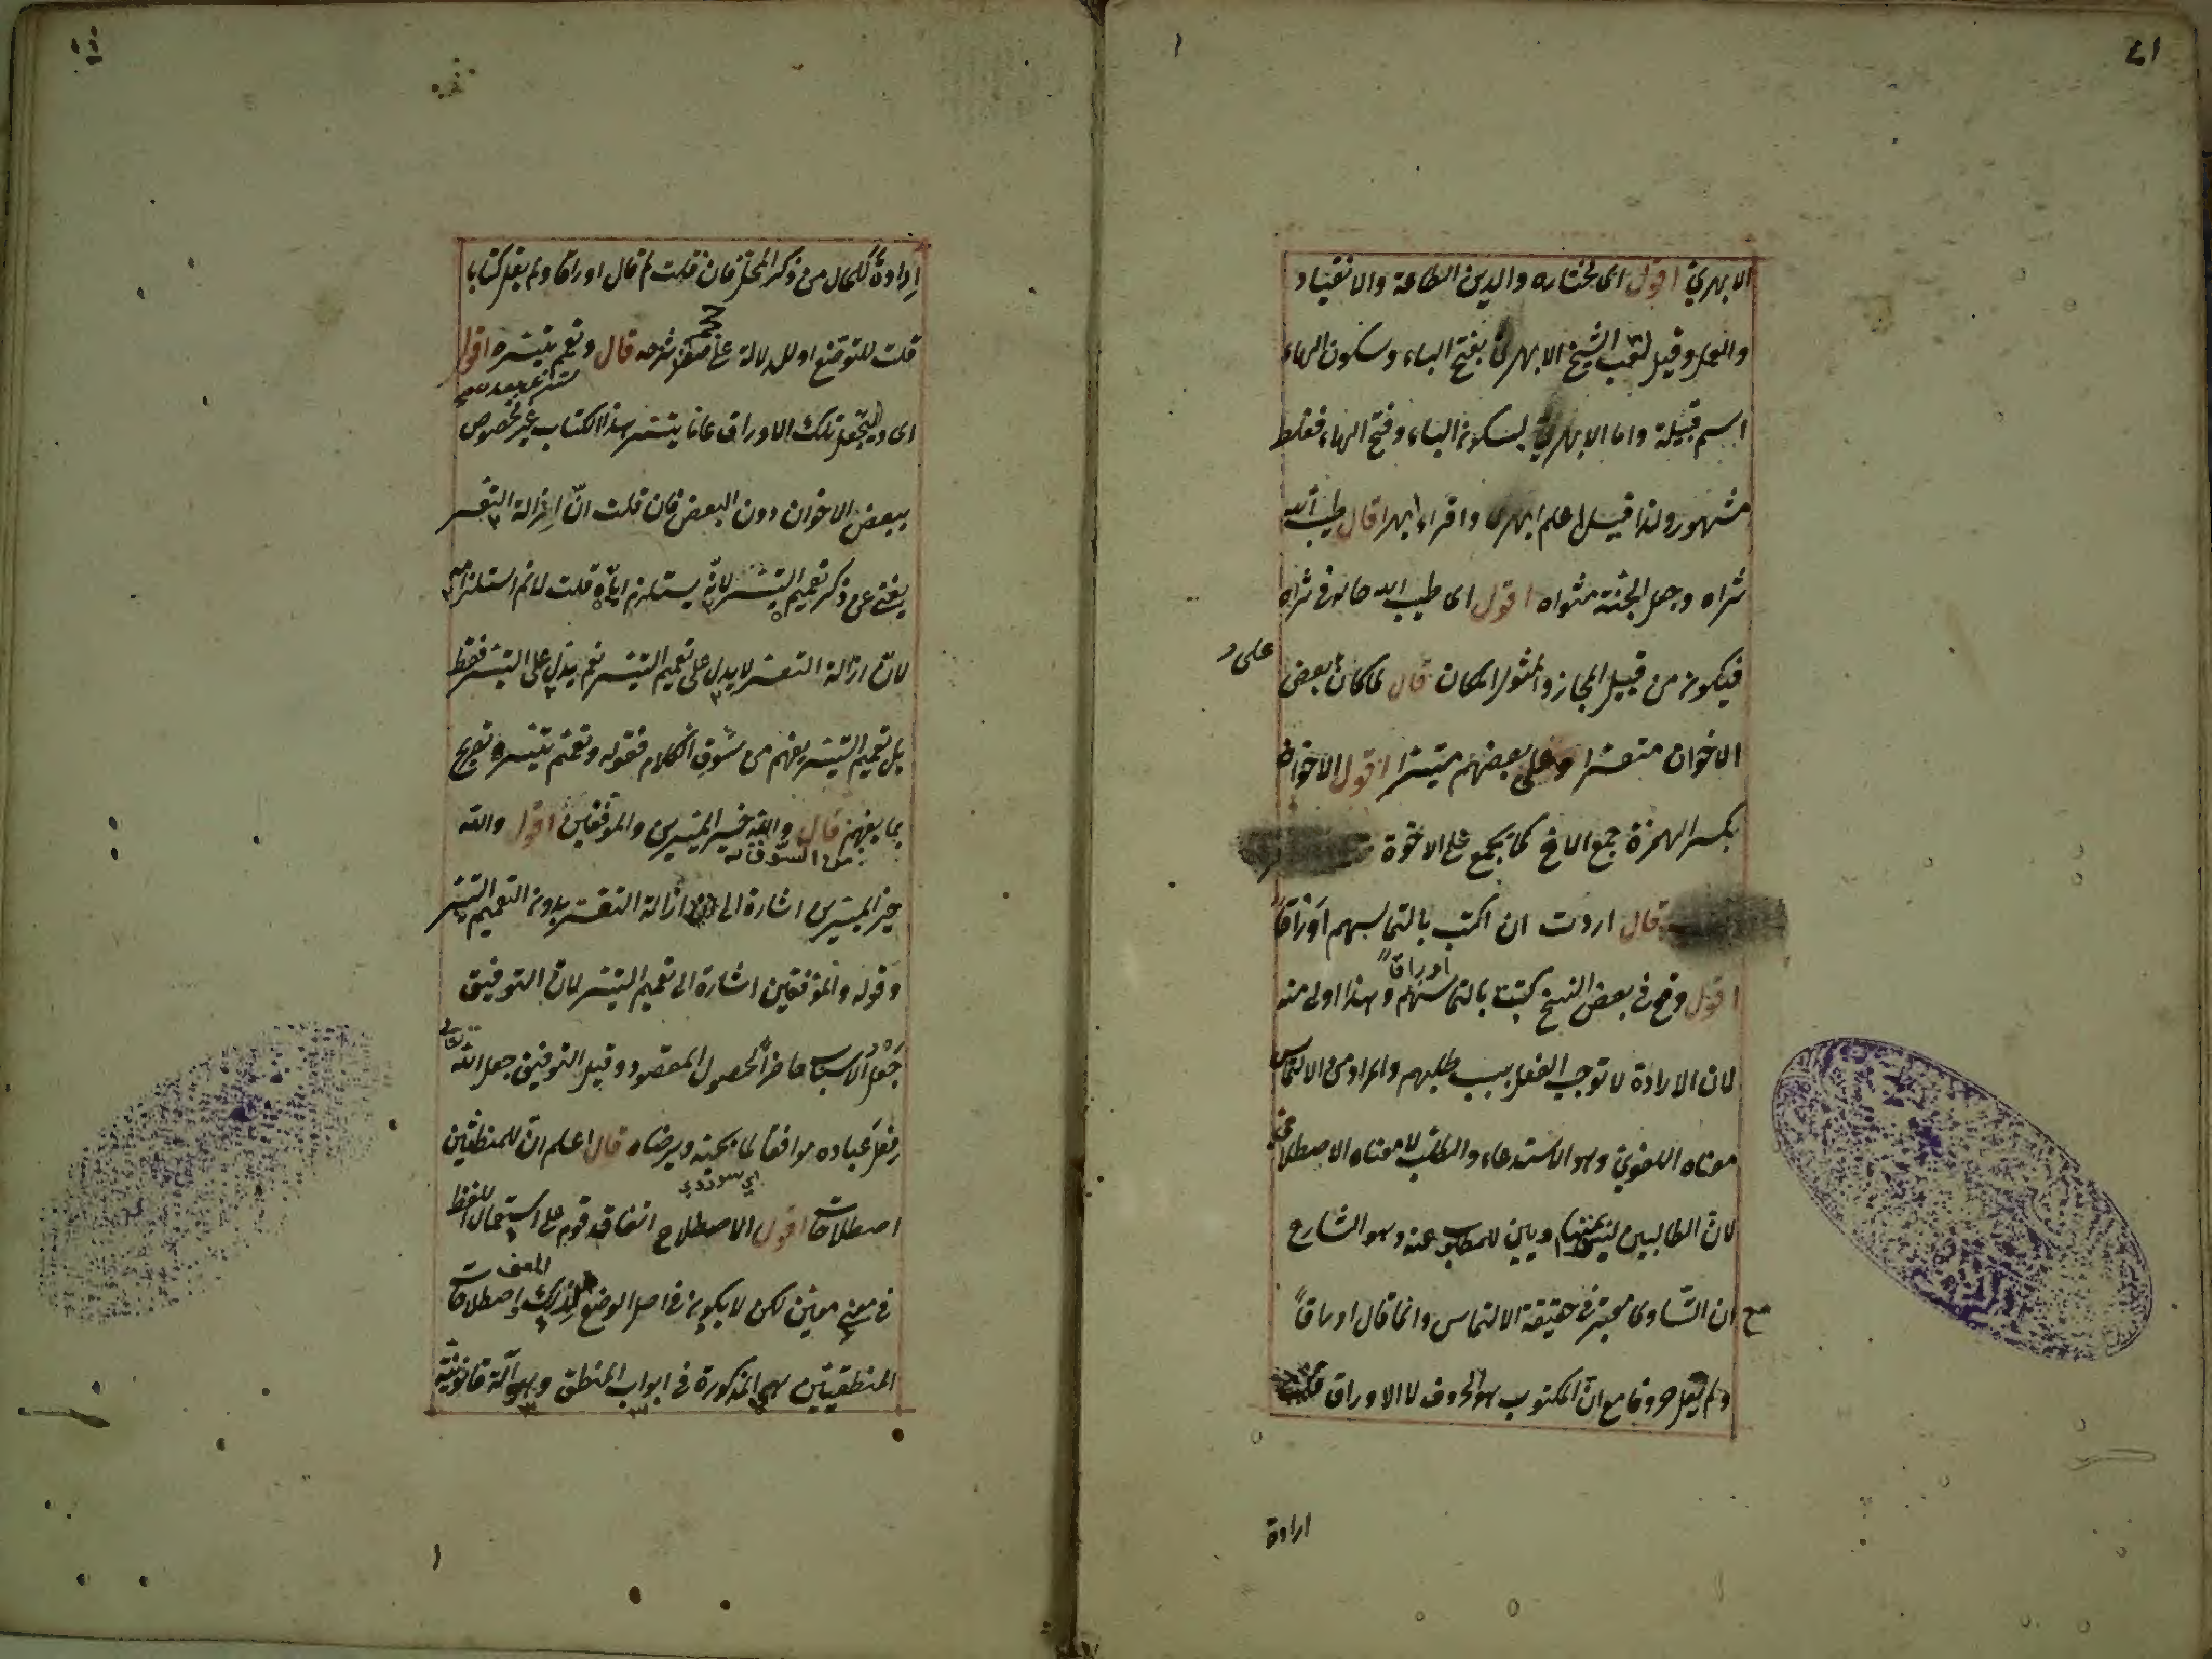 الابهري اقول اى مختاره والدين الطاعة والانقياد
والعمل وقيل لقب الشيخ الابهرى بفتح الباء وسكون الهاء
اسم قبيلة واما الابهرى بسكون الباء وفتح الهاء فغلط
مشهور ولذا قيل اعلم ابهرى واقراء ابهرا قال طيب الله
ثراه وجعل الجنة مثواه اقول اى طيب الله حاله فى ثراه
فيكون من قبيل المجاز والمثوى المكان قال لما كان بعض
على
الاخوان متعسرا وعلى بعضهم متيسرا اقول الاخوان
بكسر الهمزة جمع الاخ كما يجمع على الاخوة
قال اردت ان اكتب بالتماسهم اوراقاً
اقول وقع فى بعض النسخ كتبت بالتماسهم اوراقاً وهذا اولى منه
لان الارادة لا توجب الفعل بسبب طلبهم والمراد من الالتماس
معناه اللغوى وهو الاستدعاء والطلب لا معناه الاصطلاحى
لان الطالبين وبين المطلوب عنه وهو الشارح
مع ان التساوى معتبر فى حقيقة الالتماس وانما قال اوراقاً
ولم يقل حروفا مع ان المكتوب هو الحروف لا الاوراق
ارادة
ارادةً للحال من ذكر المحل فان قلت لم قال اوراقا ولم يقل كتابا
قلت للتوضع او للدلالة على شرحه قال وتعم تيسره اقول
اى وليجعل تلك الاوراق عاما بتيسر هذا الكتاب غير مخصوص
ببعض الاخوان دون البعض فان قلت انّ ازالة التعسر
يغنى عن ذكر تعميم التيسر لانّه يستلزم اياه قلت لا نم استلزامه
لان ازالة التعسر لا يدل على تعميم التيسر نعم يدل على التيسر فقط
بل تعميم التيسر يفهم من سوق الكلام فقوله وتعم تيسره تصريح
بما يفهم من السوق قال والله خير الميسرين والموفقين اقول والله
خير الميسرين اشارة الى ازالة التعسر بدون التعميم التيسر
وقوله والموفقين اشارة الى تعميم التيسر لان التوفيق
جعل الاسباب حاضراً لحصول المقصود وقيل التوفيق جعل الله تعالى
فعل عباده موافقا لما يحبه ويرضاه قال اعلم انّ للمنطقيين
اصطلاحات اقول الاصطلاح اتفاق قوم على استعمال اللفظ
فى معنى معين لكن لا يكون فى اصل الوضع كذلك واصطلاحات
المنطقيين هى المذكورة فى ابواب المنطق وهو آلة قانونية